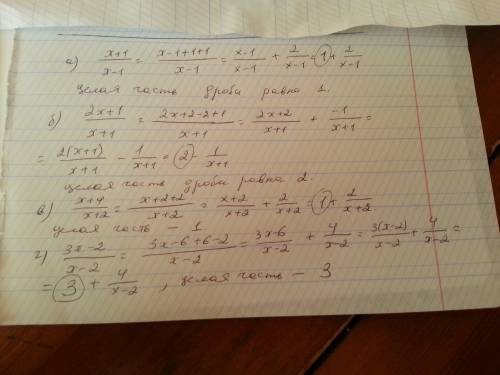 а) (x+1)/(x-1) = (x-1+1+1)/(x-1) = (x-1)/(x-1) + 2/(x-1) = 1 + 2/(x-1)
целая часть дроби равна 1.
б) (2x+1)/(x+1) = (2x+2-2+1)/(x+1) = (2x+2)/(x+1) + (-1)/(x+1) =
= 2(x+1)/(x+1) - 1/(x+1) = 2 - 1/(x+1)
целая часть дроби равна 2.
в) (x+4)/(x+2) = (x+2+2)/(x+2) = (x+2)/(x+2) + 2/(x+2) = 1 + 2/(x+2)
целая часть - 1.
г) (3x-2)/(x-2) = (3x-6+6-2)/(x-2) = (3x-6)/(x-2) + 4/(x-2) = 3(x-2)/(x-2) + 4/(x-2) =
= 3 + 4/(x-2), целая часть - 3